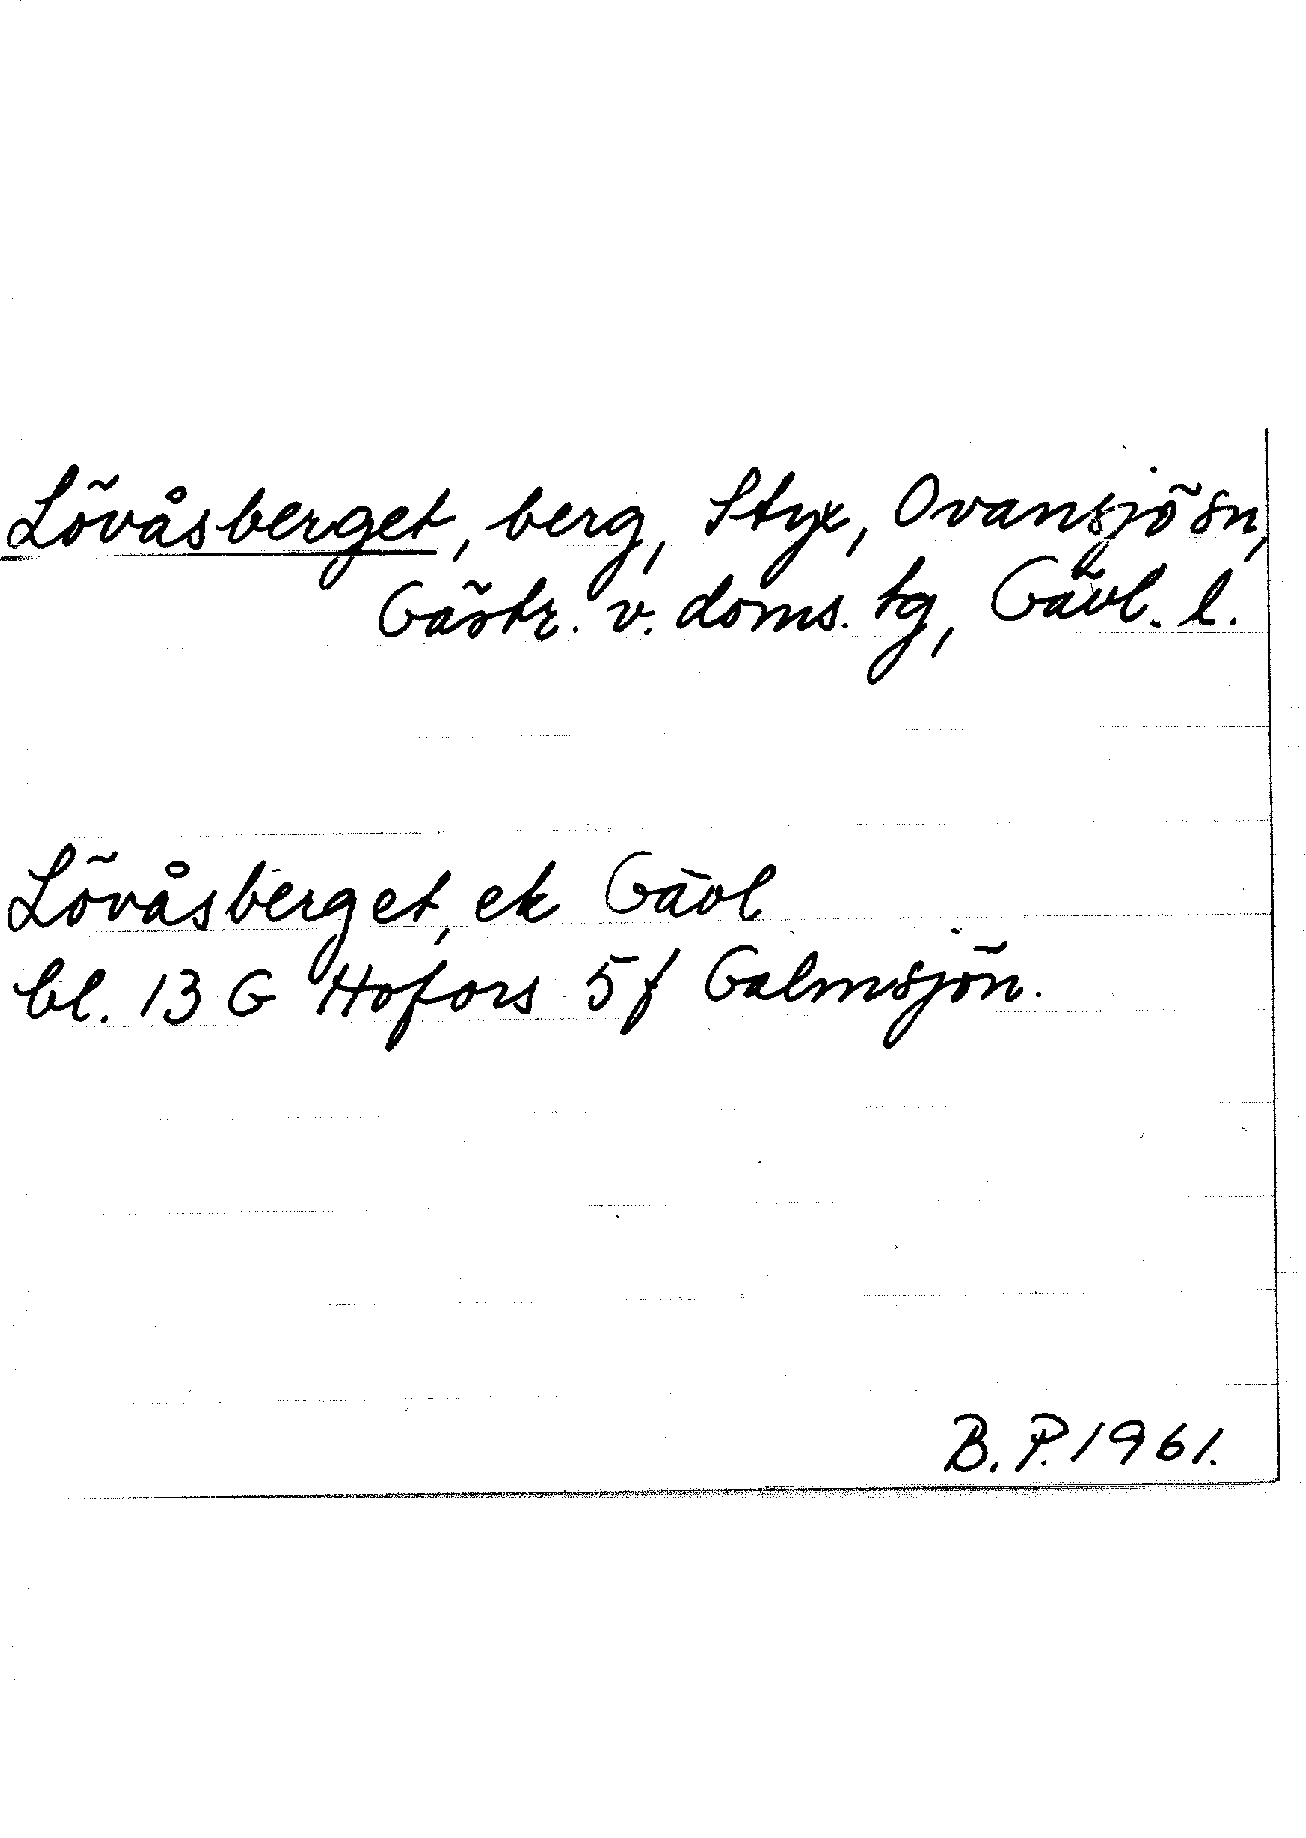 Lövåsberget, berg, Styx, Ovansjö sn,
Gästr. v. doms. tg, Gävl. l.
Lövåsberget, ek Gävl
bl. 13 G Hofors 5 f Galmsjön.
B. P. 1961.